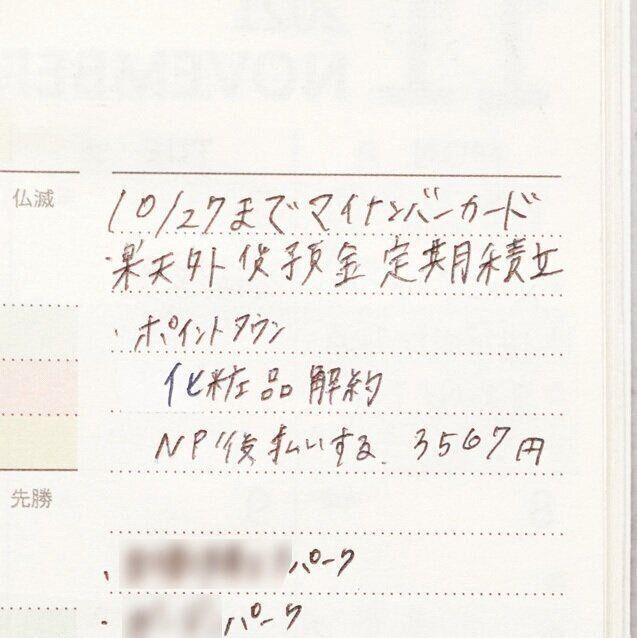 仏滅
10/27までマイナンバーカード
・楽天外貨預金 定期積立
・ポイントタウン
化粧品解約
NP後払いする. 3567円
先勝
・パーク
・パーク